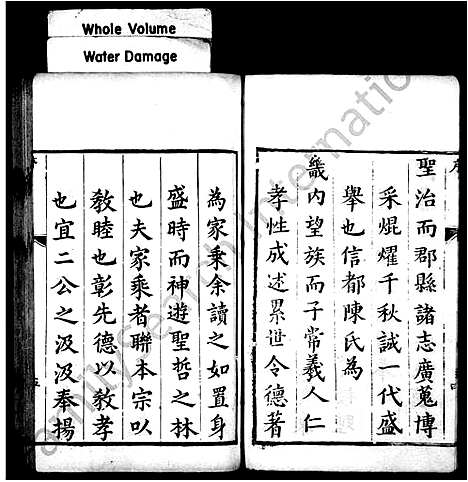 Whole Volume
Water Damage
序
聖治而郡縣諸志廣蒐博
采焜燿千秋誠一代盛
舉也信都陳氏為
畿内望族而子常羲人仁
孝性成述累世令德著
為家乘余讀之如置身
盛時而神遊聖哲之林
也夫家乘者聯本宗以
敎睦也彰先德以敎孝
也宜二公之汲汲奉揚